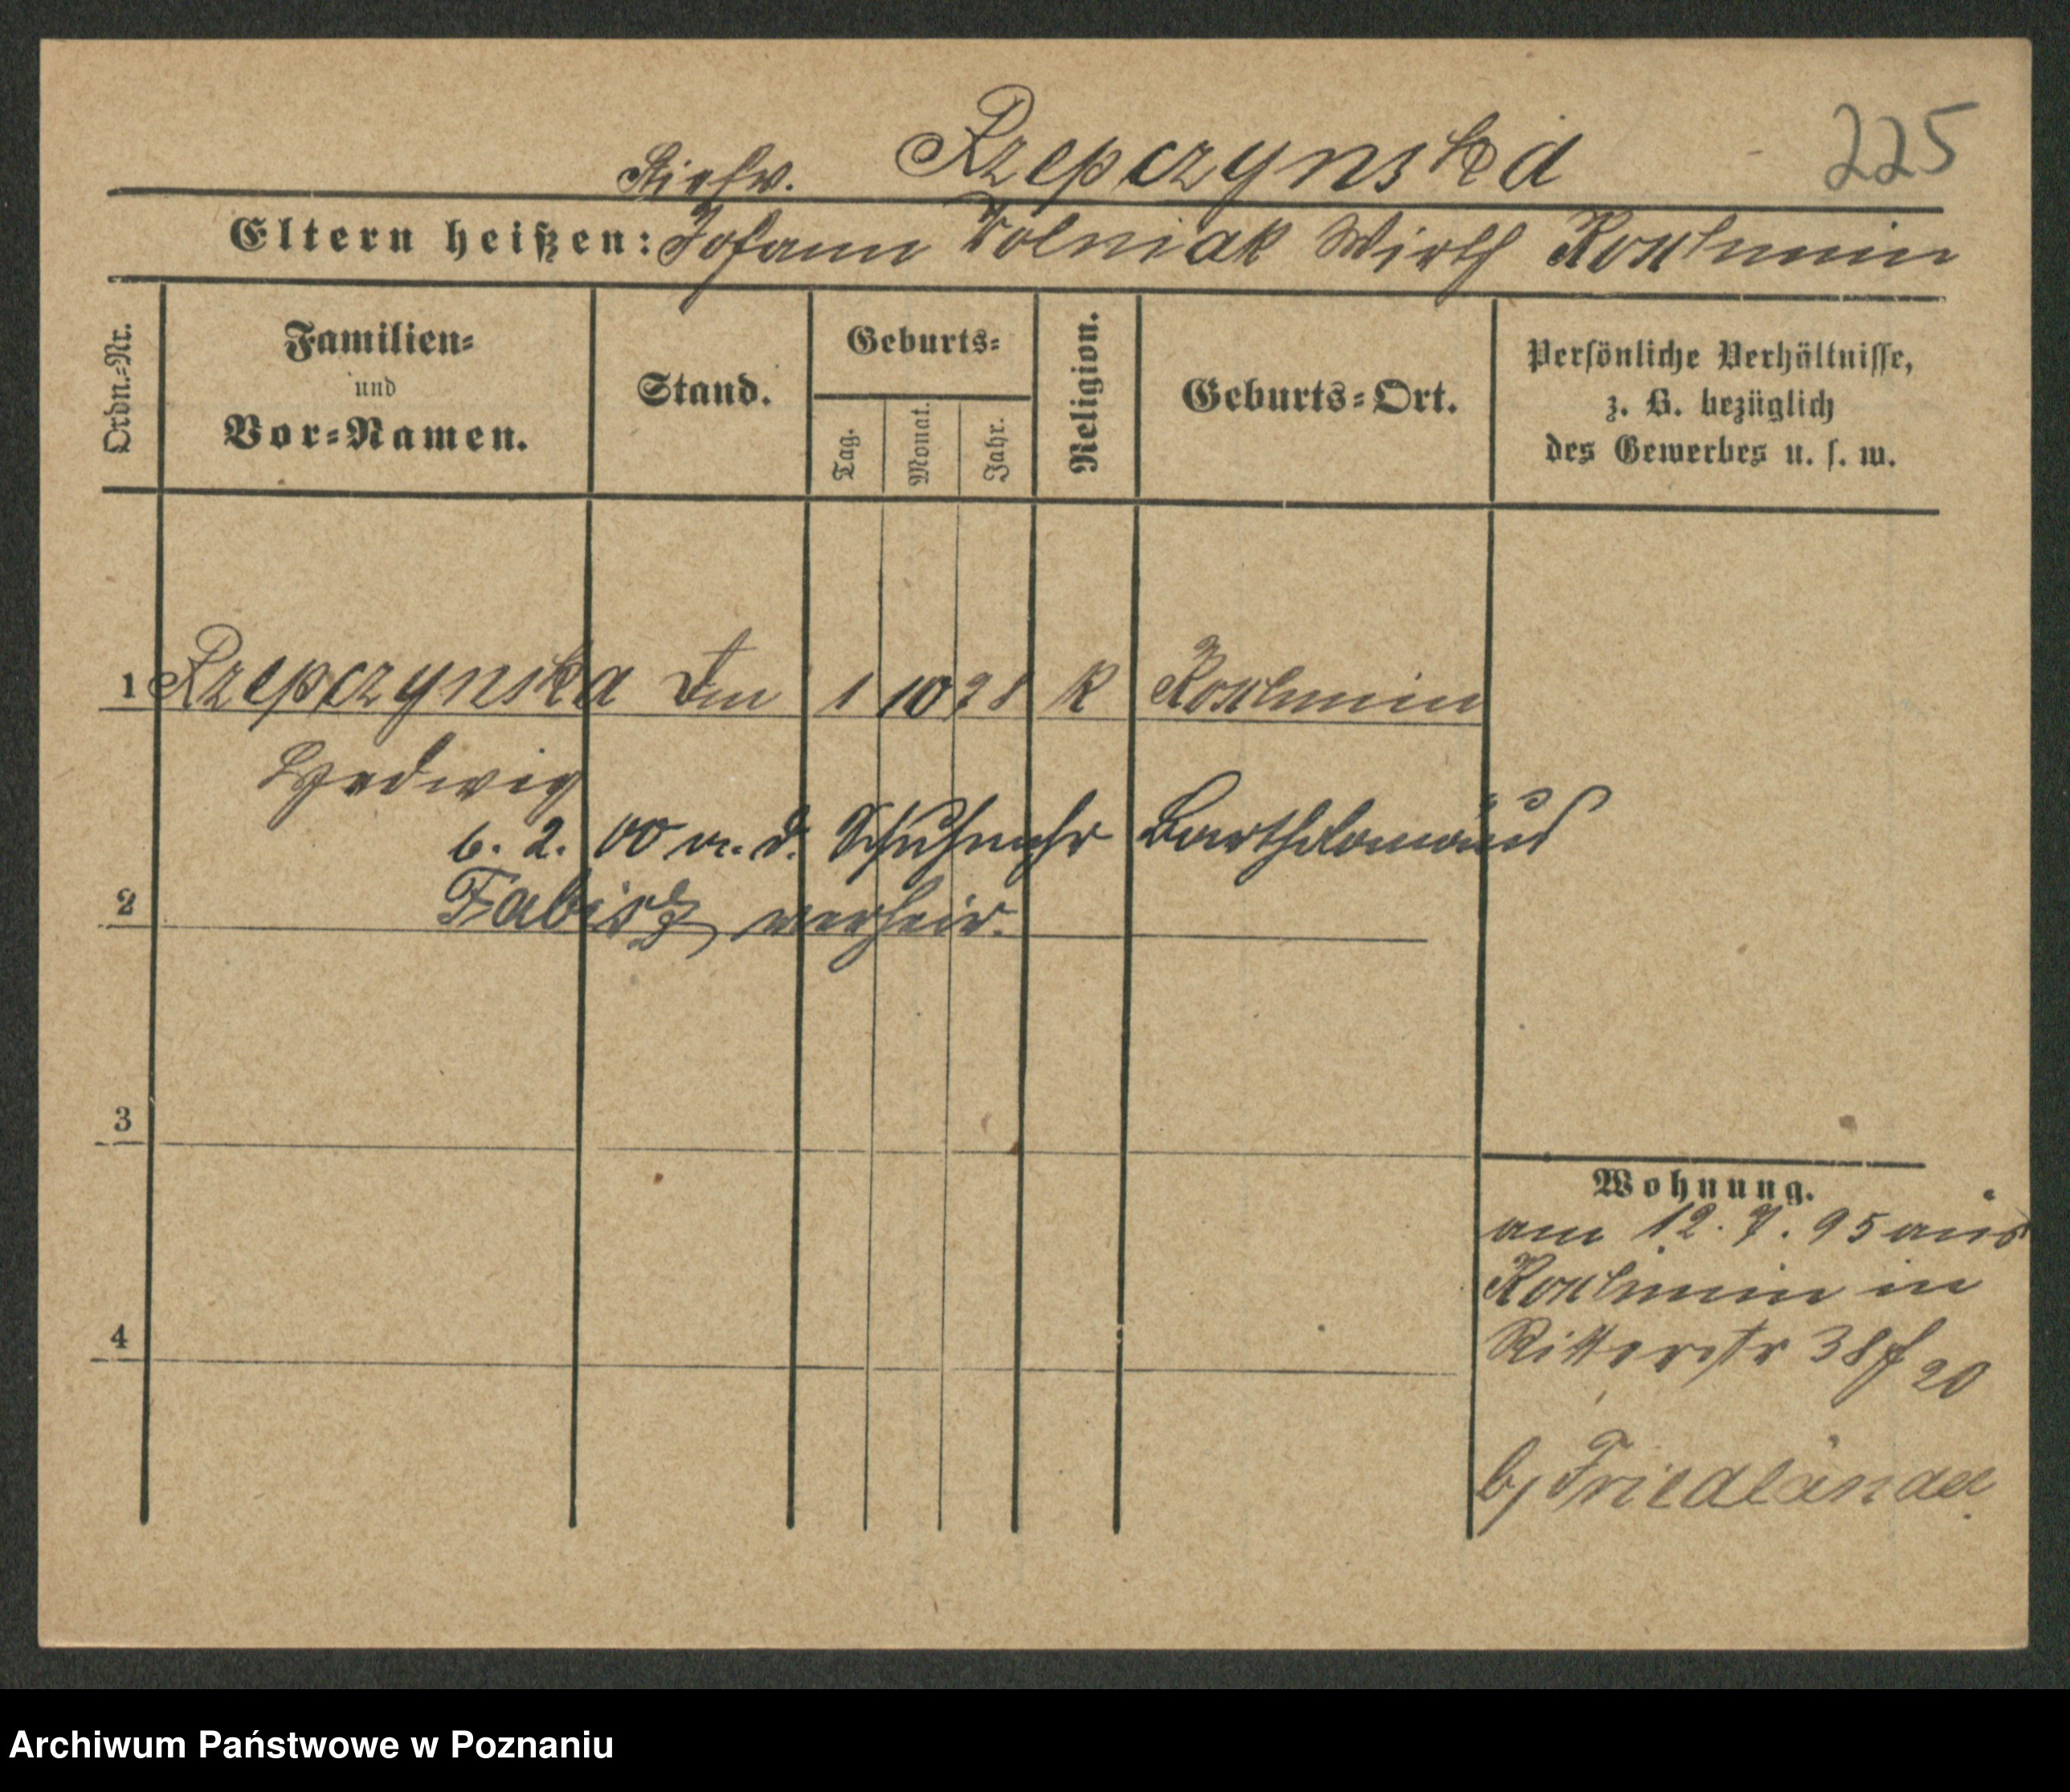 Rzepczynska 225
Eltern heißen: Johann Wolniak Wirth Koschmin
Ordn.-Nr. Familien- und Vor-Namen. Stand. Geburts- Tag. Monat. Jahr. Religion. Geburts-Ort. Persönliche Verhältnisse, z. B. bezüglich des Gewerbes u. s. w.
1 Rzepczynska 1 10 28 K Koschmin
Hedwig
6. 2. 00 m. d. Schuhmchr Bartholomäus
2 Fabisz verheir.
3
4
Wohnung.
am 12. 7. 95 aus
Koschmin in
Ritterstr 38 f 20
b/ Friedländer
Archiwum Państwowe w Poznaniu